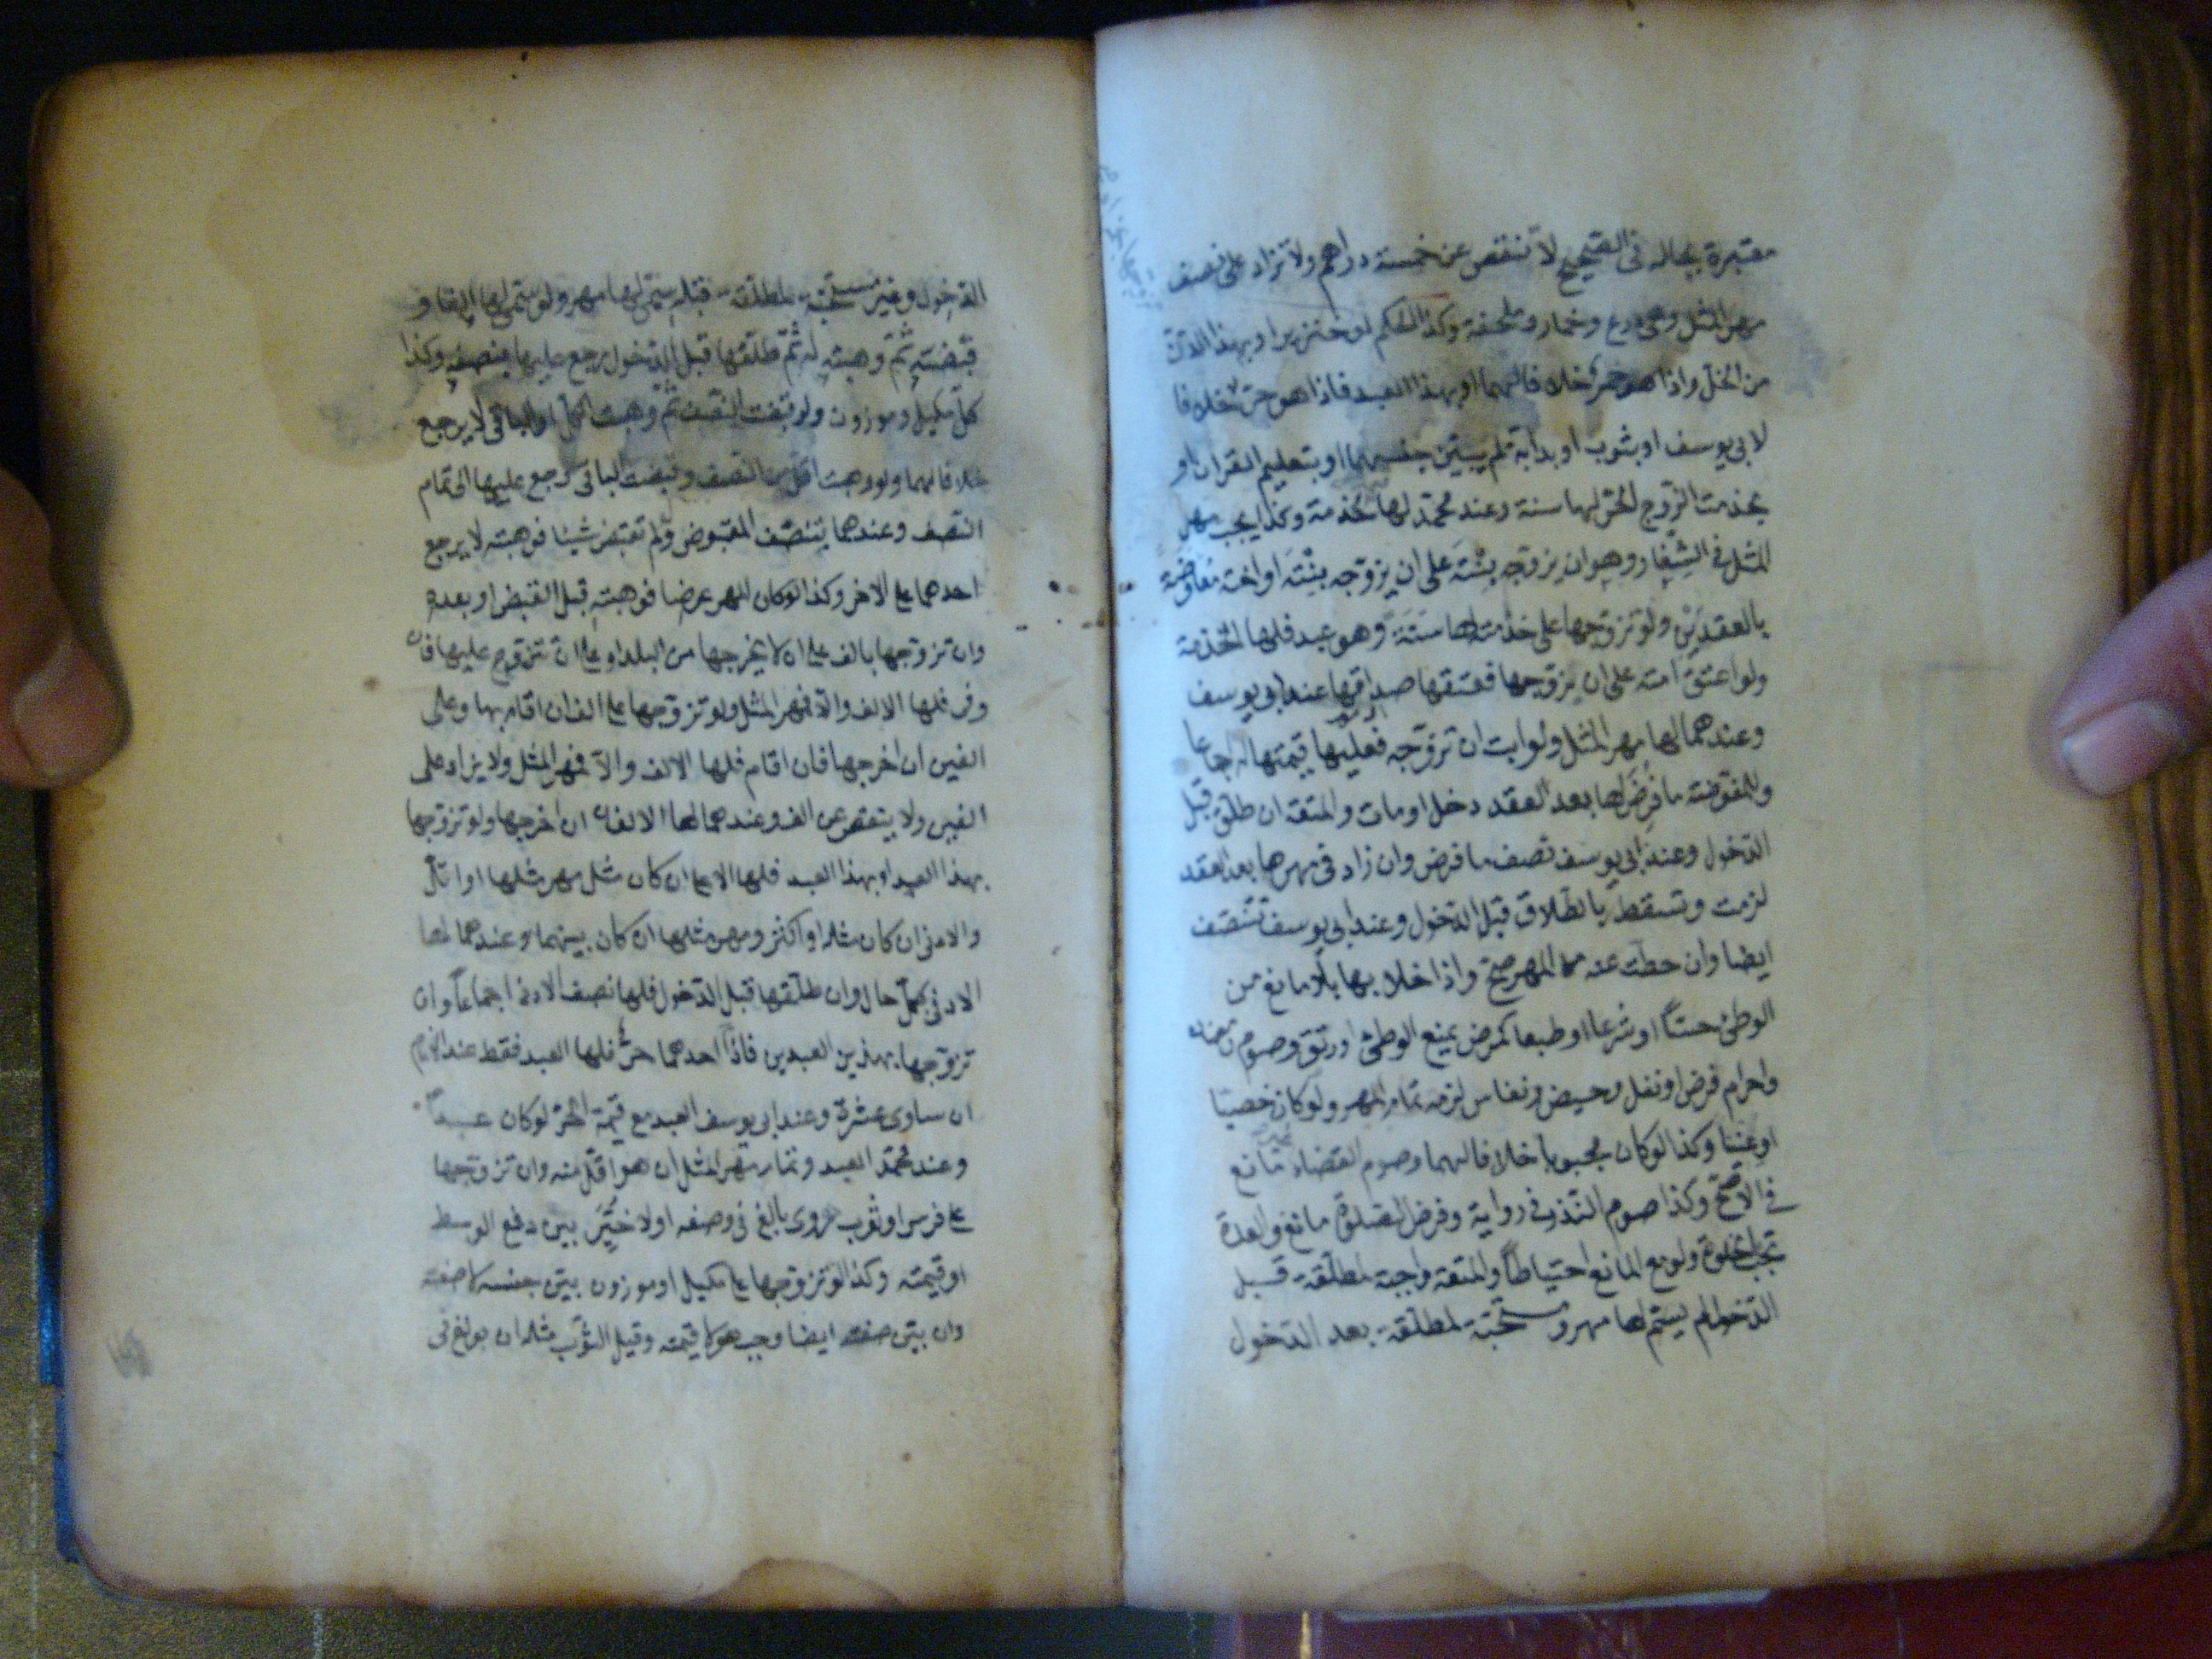 معتبرة بحاله في الصحيح لا تنقص عن خمسة دراهم ولا تزاد على نصف
مهر المثل وهي درع وخمار وملحفة وكذا الحكم لو خنزيرا وبهذا الدن
من الخل واذا هو خمر خلافا لهما او بهذا العبد فاذا هو حر خلافا
لابي يوسف او بثوب او بدابة لم يبين جنسهما او بتعليم القران او
بخدمت الزوج الحر لها سنة وعند محمد لها الخدمة وكذا يجب مهر
المثل في الشغار وهو ان يزوجه بنته على ان يزوجه بنته او اخته معاوضة
بالعقدين ولو تزوجها على خدمته لها سنة وهو عبد فلها الخدمة
ولو اعتق امته على ان يزوجها فعتقها صداقها عند ابي يوسف
وعندهما لها مهر المثل ولو ابت ان تزوجه فعليها قيمتها له اجماعا
وللمفوضة ما فرض لها بعد العقد دخل او مات والمتعة ان طلق قبل
الدخول وعند ابي يوسف نصف ما فرض وان زاد في مهرها بعد العقد
لزمت وتسقط بالطلاق قبل الدخول وعند ابي يوسف تتنصف
ايضا وان حطت عنه من المهر صح واذا خلا بها بلا مانع من
الوطئ حسا او شرعا او طبعا كمرض يمنع الوطئ او رتق وصوم رمضان
واحرام فرض او نفل وحيض ونفاس لزمه تمام المهر ولو كان خصيا
او عنينا وكذا لو كان مجبوبا خلافا لهما وصوم القضاء غير مانع
في الاصح وكذا صوم النذر في رواية وفرض الصلوة مانع والعدة
تجب بالخلوة ولو مع المانع احتياطا والمتعة واجبة لمطلقة قبل
الدخول لم يسم لها مهر ومستحبة لمطلقة بعد الدخول
الدخول وغير مستحبة لمطلقة قبله سمي لها مهر ولو سمى لها الفا و
قبضته ثم وهبته له ثم طلقها قبل الدخول رجع عليها بنصفه وكذا
كل مكيل وموزون ولو قبضت النصف ثم وهبت الكل او الباقي لا يرجع
خلافا لهما ولو وهبت اقل من النصف وقبضت الباقي رجع عليها الى تمام
النصف وعندهما بنصف المقبوض ولو لم تقبض شيئا فوهبته لا يرجع
احدهما على الاخر وكذا لو كان المهر عرضا فوهبته قبل القبض او بعده
وان تزوجها بالف على ان لا يخرجها من البلد او على ان لا يتزوج عليها فان
وفى فلها الالف والا فمهر المثل ولو تزوجها على الف ان اقام بها وعلى
الفين ان اخرجها فان اقام فلها الالف والا فمهر المثل ولا يزاد على
الفين ولا ينقص عن الف وعندهما لها الالفان ان اخرجها ولو تزوجها
بهذا العبد او بهذا العبد فلها الاعلى ان كان مثل مهر مثلها او اقل
والادنى ان كان مثله او اكثر ومهر مثلها ان كان بينهما وعندهما لها
الادنى بكل حال وان طلقها قبل الدخول فلها نصف الادنى اجماعا وان
تزوجها بهذين العبدين فاذا احدهما حر فلها العبد فقط عند الامام
ان ساوى عشرة وعند ابي يوسف العبد مع قيمة الحر لو كان عبدا
وعند محمد العبد وتمام مهر المثل ان هو اقل منه وان تزوجها
على فرس او ثوب هروى بالغ في وصفه او لا خير بين دفع الوسط
او قيمته وكذا لو تزوجها على مكيل او موزون بين جنسه لا صفته
وان بين صفته ايضا وجب هو لا قيمته وقيل الثوب مثله ان بولغ في